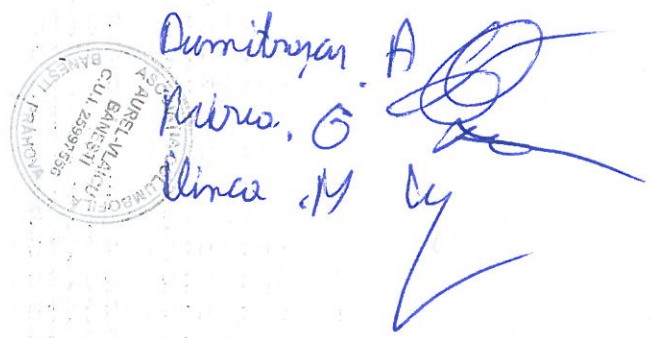 Dumitrașcu A
Maria. G
Ilinca .M
ASOCIAȚIA COLUMBOFILA
AUREL-VLAICU
BANESTI
C.U.I. 25997556
BANESTI - PRAHOVA